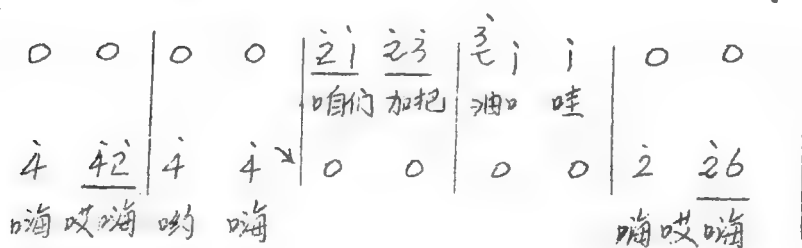 0 0 | 0 0 | 2̇1̇ 2̇3̇ | 3̇ 1̇ 1̇ | 0 0
咱们 加把 油 哇
4̇ 4̇2̇ | 4̇ 4̇↘ | 0 0 | 0 0 | 2̇ 2̇6
嗨 哎嗨 哟 嗨 嗨 哎嗨